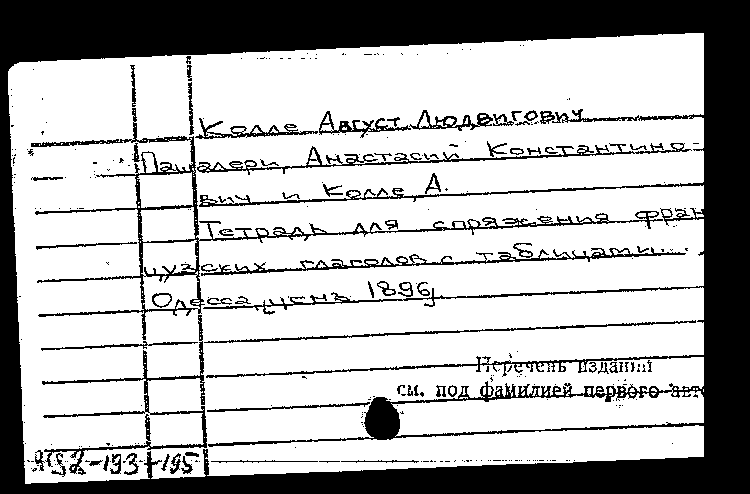 Колле Август Людвигович
Пашалери, Анастасий Константино-
вич и Колле, А.
Тетрадь для спряжения фран
цузских глаголов с таблицами...
Одесса, ценз 1896г.
Перечень изданий
см. под фамилией первого авто
-193-195